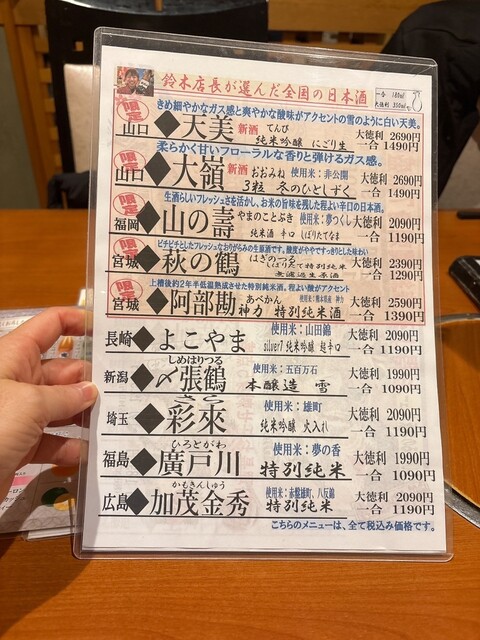 鈴木店長が選んだ全国の日本酒 一合 180ml 大徳利 300ml
きめ細やかなガス感と爽やかな酸味がアクセントの雪のように白い天美。
限定 山口◆天美 新酒 てんび 純米吟醸 にごり生 大徳利 2690円 一合 1490円
柔らかく甘いフローラルな香りと弾けるガス感。
限定 山口◆大嶺 新酒 おおみね 使用米:非公開 3粒 冬のひとしずく 大徳利 2690円 一合 1490円
生酒らしいフレッシュさを活かし、お米の旨味を残した程よい辛口の日本酒。
限定 福岡◆山の壽 やまのことぶき 使用米:夢つくし 純米酒 辛口 しぼりたてなま 大徳利 2090円 一合 1190円
ピチピチとしたフレッシュなおりがらみの生原酒です。酸度がややですっきりとした味わい
限定 宮城◆萩の鶴 はぎのつる しぼりたて特別純米 無濾過生原酒 2290円 一合 1290円
上槽後約2年半低温熟成させた特別純米酒。程よい酸がアクセント
限定 宮城◆阿部勘 あべかん 神力 特別純米酒 大徳利 2590円 一合 1390円
長崎◆よこやま 使用米:山田錦 silver7 純米吟醸 超辛口 大徳利 2090円 一合 1190円
新潟◆〆張鶴 しめはりつる 使用米:五百万石 本醸造 雪 大徳利 1990円 一合 1090円
埼玉◆彩來 さら 使用米:雄町 純米吟醸 火入れ 大徳利 2090円 一合 1190円
福島◆廣戸川 ひろとがわ 使用米:夢の香 特別純米 大徳利 1990円 一合 1090円
広島◆加茂金秀 かもきんしゅう 使用米:赤盤雄町、八反錦 特別純米 大徳利 2090円 一合 1190円
こちらのメニューは、全て税込み価格です。